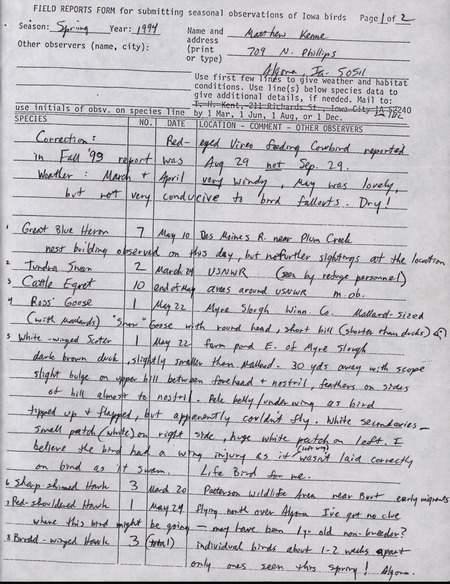 FIELD REPORTS FORM for submitting seasonal observations of Iowa birds Page 1 of 2
Season: Spring Year: 1994 Name and Matthew Kenne
Other observers (name, city): address 709 N. Phillips
(print
or type) Algona, Ia. 50511
Use first few lines to give weather and habitat
conditions. Use line(s) below species data to
give additional details, if needed. Mail to:
T. H. Kent, 211 Richards St., Iowa City IA 52240
use initials of obsv. on species line by 1 Mar, 1 Jun, 1 Aug, or 1 Dec.
SPECIES NO. DATE LOCATION - COMMENT - OTHER OBSERVERS
Correction: Red-eyed Vireo feeding Cowbird reported
in Fall '93 report was Aug 29 not Sep. 29.
Weather: March + April very windy, May was lovely,
but not very conducive to bird fallouts. Dry!
1 Great Blue Heron 7 May 10 Des Moines R. near Plum Creek
nest building observed on this day, but no further sightings at the location
2 Tundra Swan 2 March 24 USNWR (seen by refuge personnel)
3 Cattle Egret 10 end of May areas around USNWR m.ob.
4 Ross' Goose 1 May 22 Myre Slough Winn. Co. Mallard-sized
(with Mallards) "Snow" Goose with round head, short bill (shorter than ducks)
5 White-winged Scoter 1 May 22 farm pond E. of Myre Slough
dark brown duck, slightly smaller than Mallard. 30 yds away with scope
slight bulge on upper bill between forehead + nostril, feathers on sides
of bill almost to nostril. Pale belly/underwing as bird
tipped up + flapped, but apparently couldn't fly. White secondaries -
small patch (white) on right side, huge white patch on left. I
believe the bird had a wing injury as it wasn't laid correctly
on bird as it swam. Life Bird for me.
6 Sharp-shinned Hawk 3 March 20 Patterson Wildlife Area near Burt early migrants
7 Red-shouldered Hawk May 24 Flying north over Algona I've got no clue
where this bird might be going - may have been 1 yr. old non-breeder?
8 Broad-winged Hawk 3 (total) individual birds about 1-2 weeks apart
only ones seen this spring! Algona.